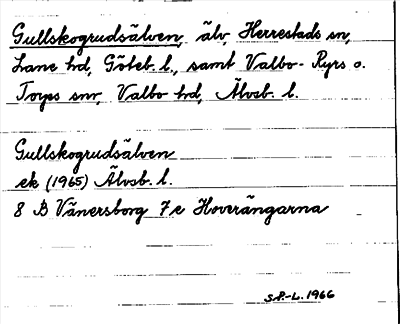 Gullskogrudsälven, älv, Herrestads sn,
Lane hd, Göteb. l., samt Valbo-Ryrs o.
Torps snr, Valbo hd, Älvsb. l.
Gullskogrudsälven
ek (1965) Älvsb. l.
8 B Vänersborg 7e Hoverängarna
S.P.-L. 1966